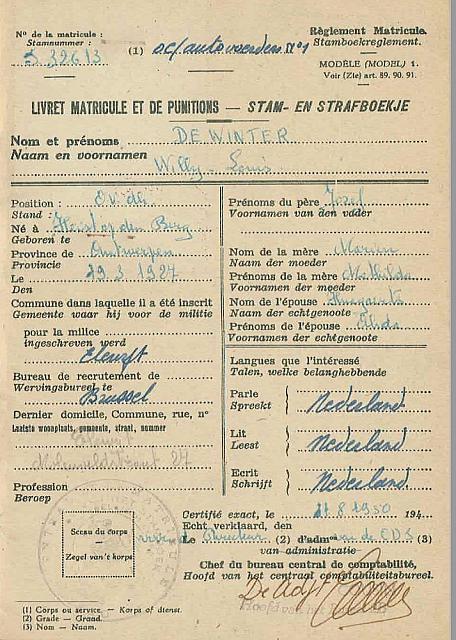 Nº de la matricule :
Stamnummer :
(1) O.C./autovoerders Nº 1
Règlement Matricule.
Stamboekreglement.
MODÈLE (MODEL) 1.
Voir (Zie) art. 89. 90. 91.
LIVRET MATRICULE ET DE PUNITIONS — STAM- EN STRAFBOEKJE
Nom et prénoms DE WINTER
Naam en voornamen
Willy - Louis
Position :
Stand :
Né à Heist op den Berg
Geboren te
Province de Antwerpen
Provincie
Le 29 3 1927
Den
Commune dans laquelle il a été inscrit
Gemeente waar hij voor de militie
pour la milice
ingeschreven werd
Bureau de recrutement de
Wervingsbureel te
Brussel
Dernier domicile, Commune, rue, nº
Laatste woonplaats, gemeente, straat, nummer
27
Profession
Beroep
Sceau du corps
—
Zegel van't korps
(1) Corps ou service. — Korps of dienst.
(2) Grade — Graad.
(3) Nom — Naam.
Prénoms du père Jozef
Voornamen van den vader
Nom de la mère
Naam der moeder
Prénoms de la mère Mathilda
Voornamen der moeder
Nom de l'épouse
Naam der echtgenoote
Prénoms de l'épouse
Voornamen der echtgenoote
Langues que l'intéressé
Talen, welke belanghebbende
Parle
Spreekt } Nederland
Lit
Leest } Nederland
Ecrit
Schrijft } Nederland
Certifié exact, le 11.8.1950 194
Echt verklaard, den
Le Directeur (2) d'adm (3)
van administratie
Chef du bureau central de comptabilité,
Hoofd van het centraal comptabiliteitsbureel.